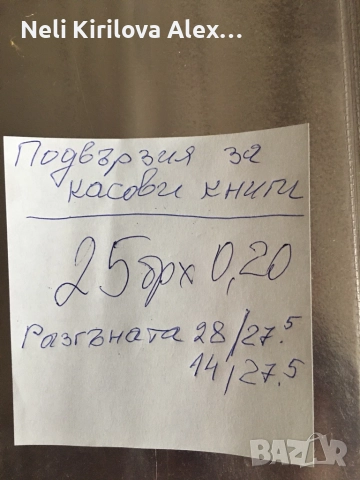 Neli Kirilova Alex...
Подвързия за
касови книги
25брх0,20
Разгъната 28/27.5
14/27.5
BAZAR